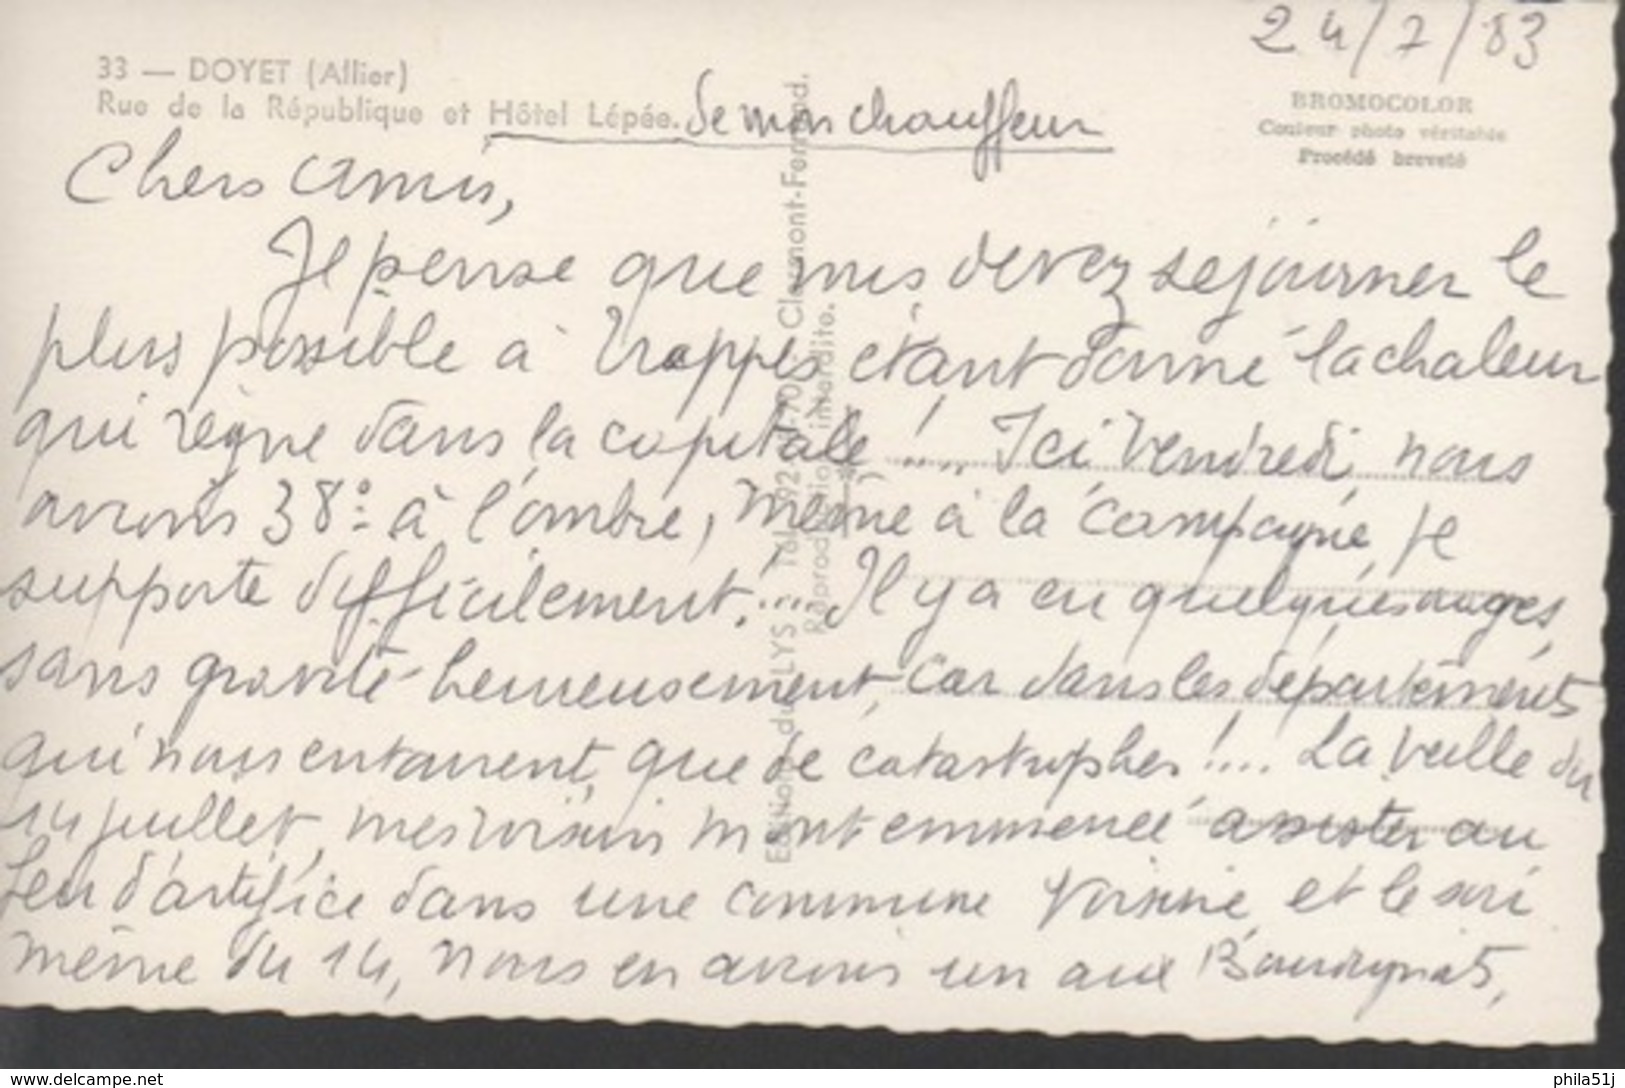 24/7/83
33 — DOYET (Allier)
Rue de la République et Hôtel Lépée. de mon chauffeur
BROMOCOLOR
Couleur photo véritable
Procédé breveté
Chers amis,
Je pense que vous devez séjourner le
plus possible à Trappes étant donné la chaleur
qui règne dans la capitale !... Ici Vendredi nous
avions 38° à l'ombre, même à la campagne, je
supporte difficilement !... Il y a eu quelques orages,
sans gravité heureusement, car dans les départements
qui nous entourent, que de catastrophes !... La veille du
14 juillet, mes voisins m'ont emmenée assister au
feu d'artifice dans une commune voisine, et le soir
même du 14, nous en avions un aux Bourrignats,
Editions du LYS Clermont-Ferrand.
Reproduction interdite.
www.delcampe.net
phila51j